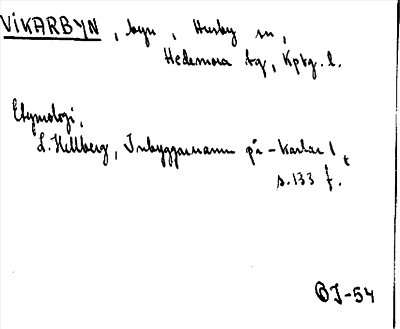 VIKARBYN, byn, Husby sn,
Hedemora tg, Kpbg. l.
Etymologi,
L. Hellberg, Inbyggarnamn på -karlar 1,
s. 133 f.
BJ-54